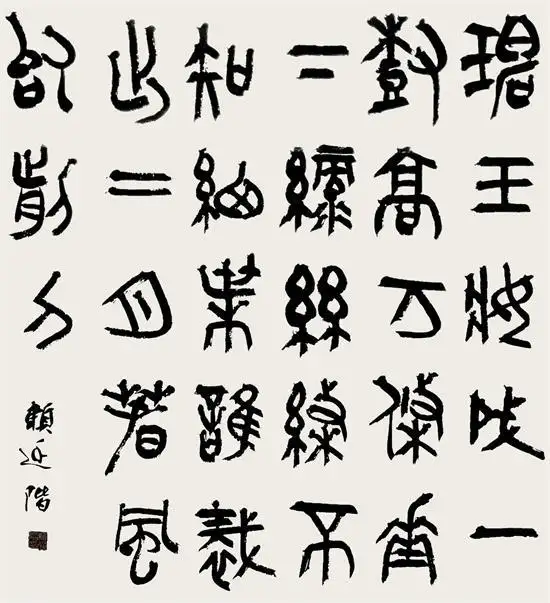 碧玉妝成一
樹高万條垂
下綠絲絛不
知細葉誰裁
出二月春風
似剪刀